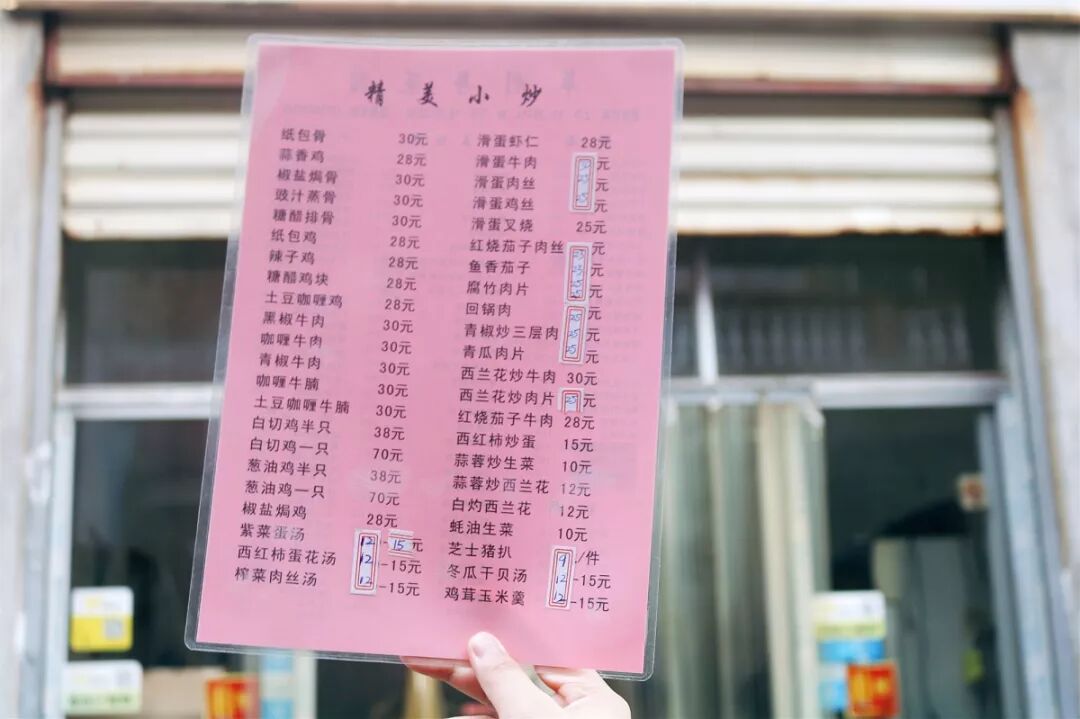 精美小炒
纸包骨 30元
蒜香鸡 28元
椒盐焗骨 30元
豉汁蒸骨 30元
糖醋排骨 30元
纸包鸡 28元
辣子鸡 28元
糖醋鸡块 28元
土豆咖喱鸡 28元
黑椒牛肉 30元
咖喱牛肉 30元
青椒牛肉 30元
咖喱牛腩 30元
土豆咖喱牛腩 30元
白切鸡半只 38元
白切鸡一只 70元
葱油鸡半只 38元
葱油鸡一只 70元
椒盐焗鸡 28元
紫菜蛋汤 12-15元
西红柿蛋花汤 12-15元
榨菜肉丝汤 12-15元
滑蛋虾仁 28元
滑蛋牛肉 元
滑蛋肉丝 25元
滑蛋鸡丝 25元
滑蛋叉烧 25元
红烧茄子肉丝 25元
鱼香茄子 25元
腐竹肉片 25元
回锅肉 25元
青椒炒三层肉 25元
青瓜肉片 25元
西兰花炒牛肉 30元
西兰花炒肉片 25元
红烧茄子牛肉 28元
西红柿炒蛋 15元
蒜蓉炒生菜 10元
蒜蓉炒西兰花 12元
白灼西兰花 12元
蚝油生菜 10元
芝士猪扒 9/件
冬瓜干贝汤 12-15元
鸡茸玉米羹 12-15元